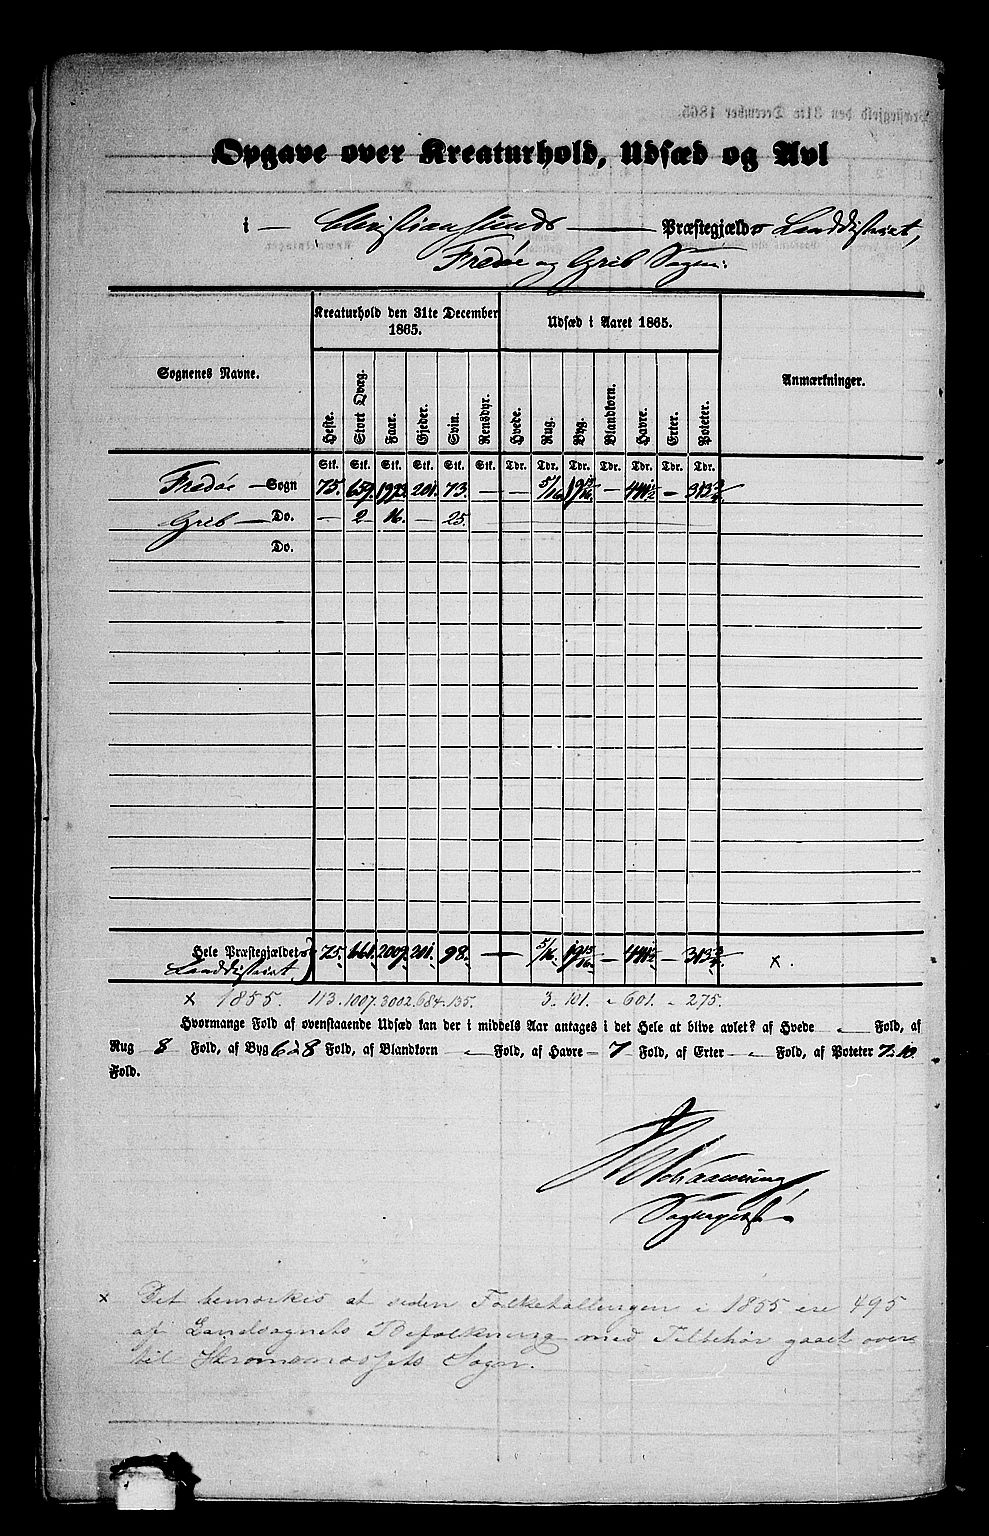 Præstegjeld den 31te December 1865.
Opgave over Kreaturhold, Udsæd og Avl
i Christiansunds Præstegjælds Landdistrict,
Fredöe og Grib Sogne.
Sognenes Navne. Kreaturhold den 31te December 1865. Udsæd i Aaret 1865. Anmærkninger.
Heste. Stort Qvæg. Faar. Gjeder. Svin. Rensdyr. Hvede. Rug. Byg. Blandkorn. Havre. Erter. Poteter.
Stk. Stk. Stk. Stk. Stk. Stk. Tdr. Tdr. Tdr. Tdr. Tdr. Tdr. Tdr.
Fredöe — Sogn 75. 659. 201. 73. — — 5/16 19 13/16 — — 313 3/4
Grib — Do. — 2 16. — 25.
Do.
Hele Præstegjældets 75. 661. 2009. 201. 98. — — 5/16 19 13/16 — — 313 3/4 x.
Landdistrict.
x 1855. 113. 1007. 3002. 684. 135. 3. 101. „ 601. „ 275.
Hvormange Fold af ovenstaaende Udsæd kan der i middels Aar antages i det Hele at blive avlet? af Hvede „ Fold, af
Rug 8 Fold, af Byg 6 à 8 Fold, af Blandkorn „ Fold, af Havre – 7 Fold, af Erter „ Fold, af Poteter 7-10
Fold.
Sognepræst
x Det bemærkes at siden Folketællingen i 1855 ere 495
af Landsognets Befolkning med Tilbehør gaaet over
til Sogn.